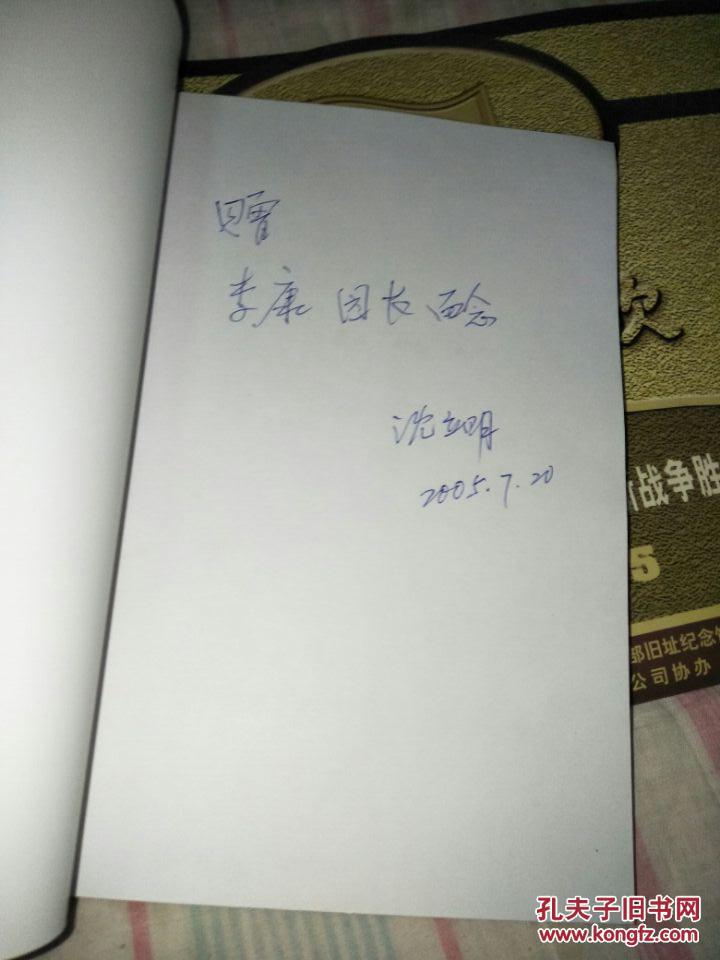 赠
李康 园长 念
沈立明
2005.7.20
战争胜
5
部旧址纪念
公司协办
孔夫子旧书网
www.kongfz.com